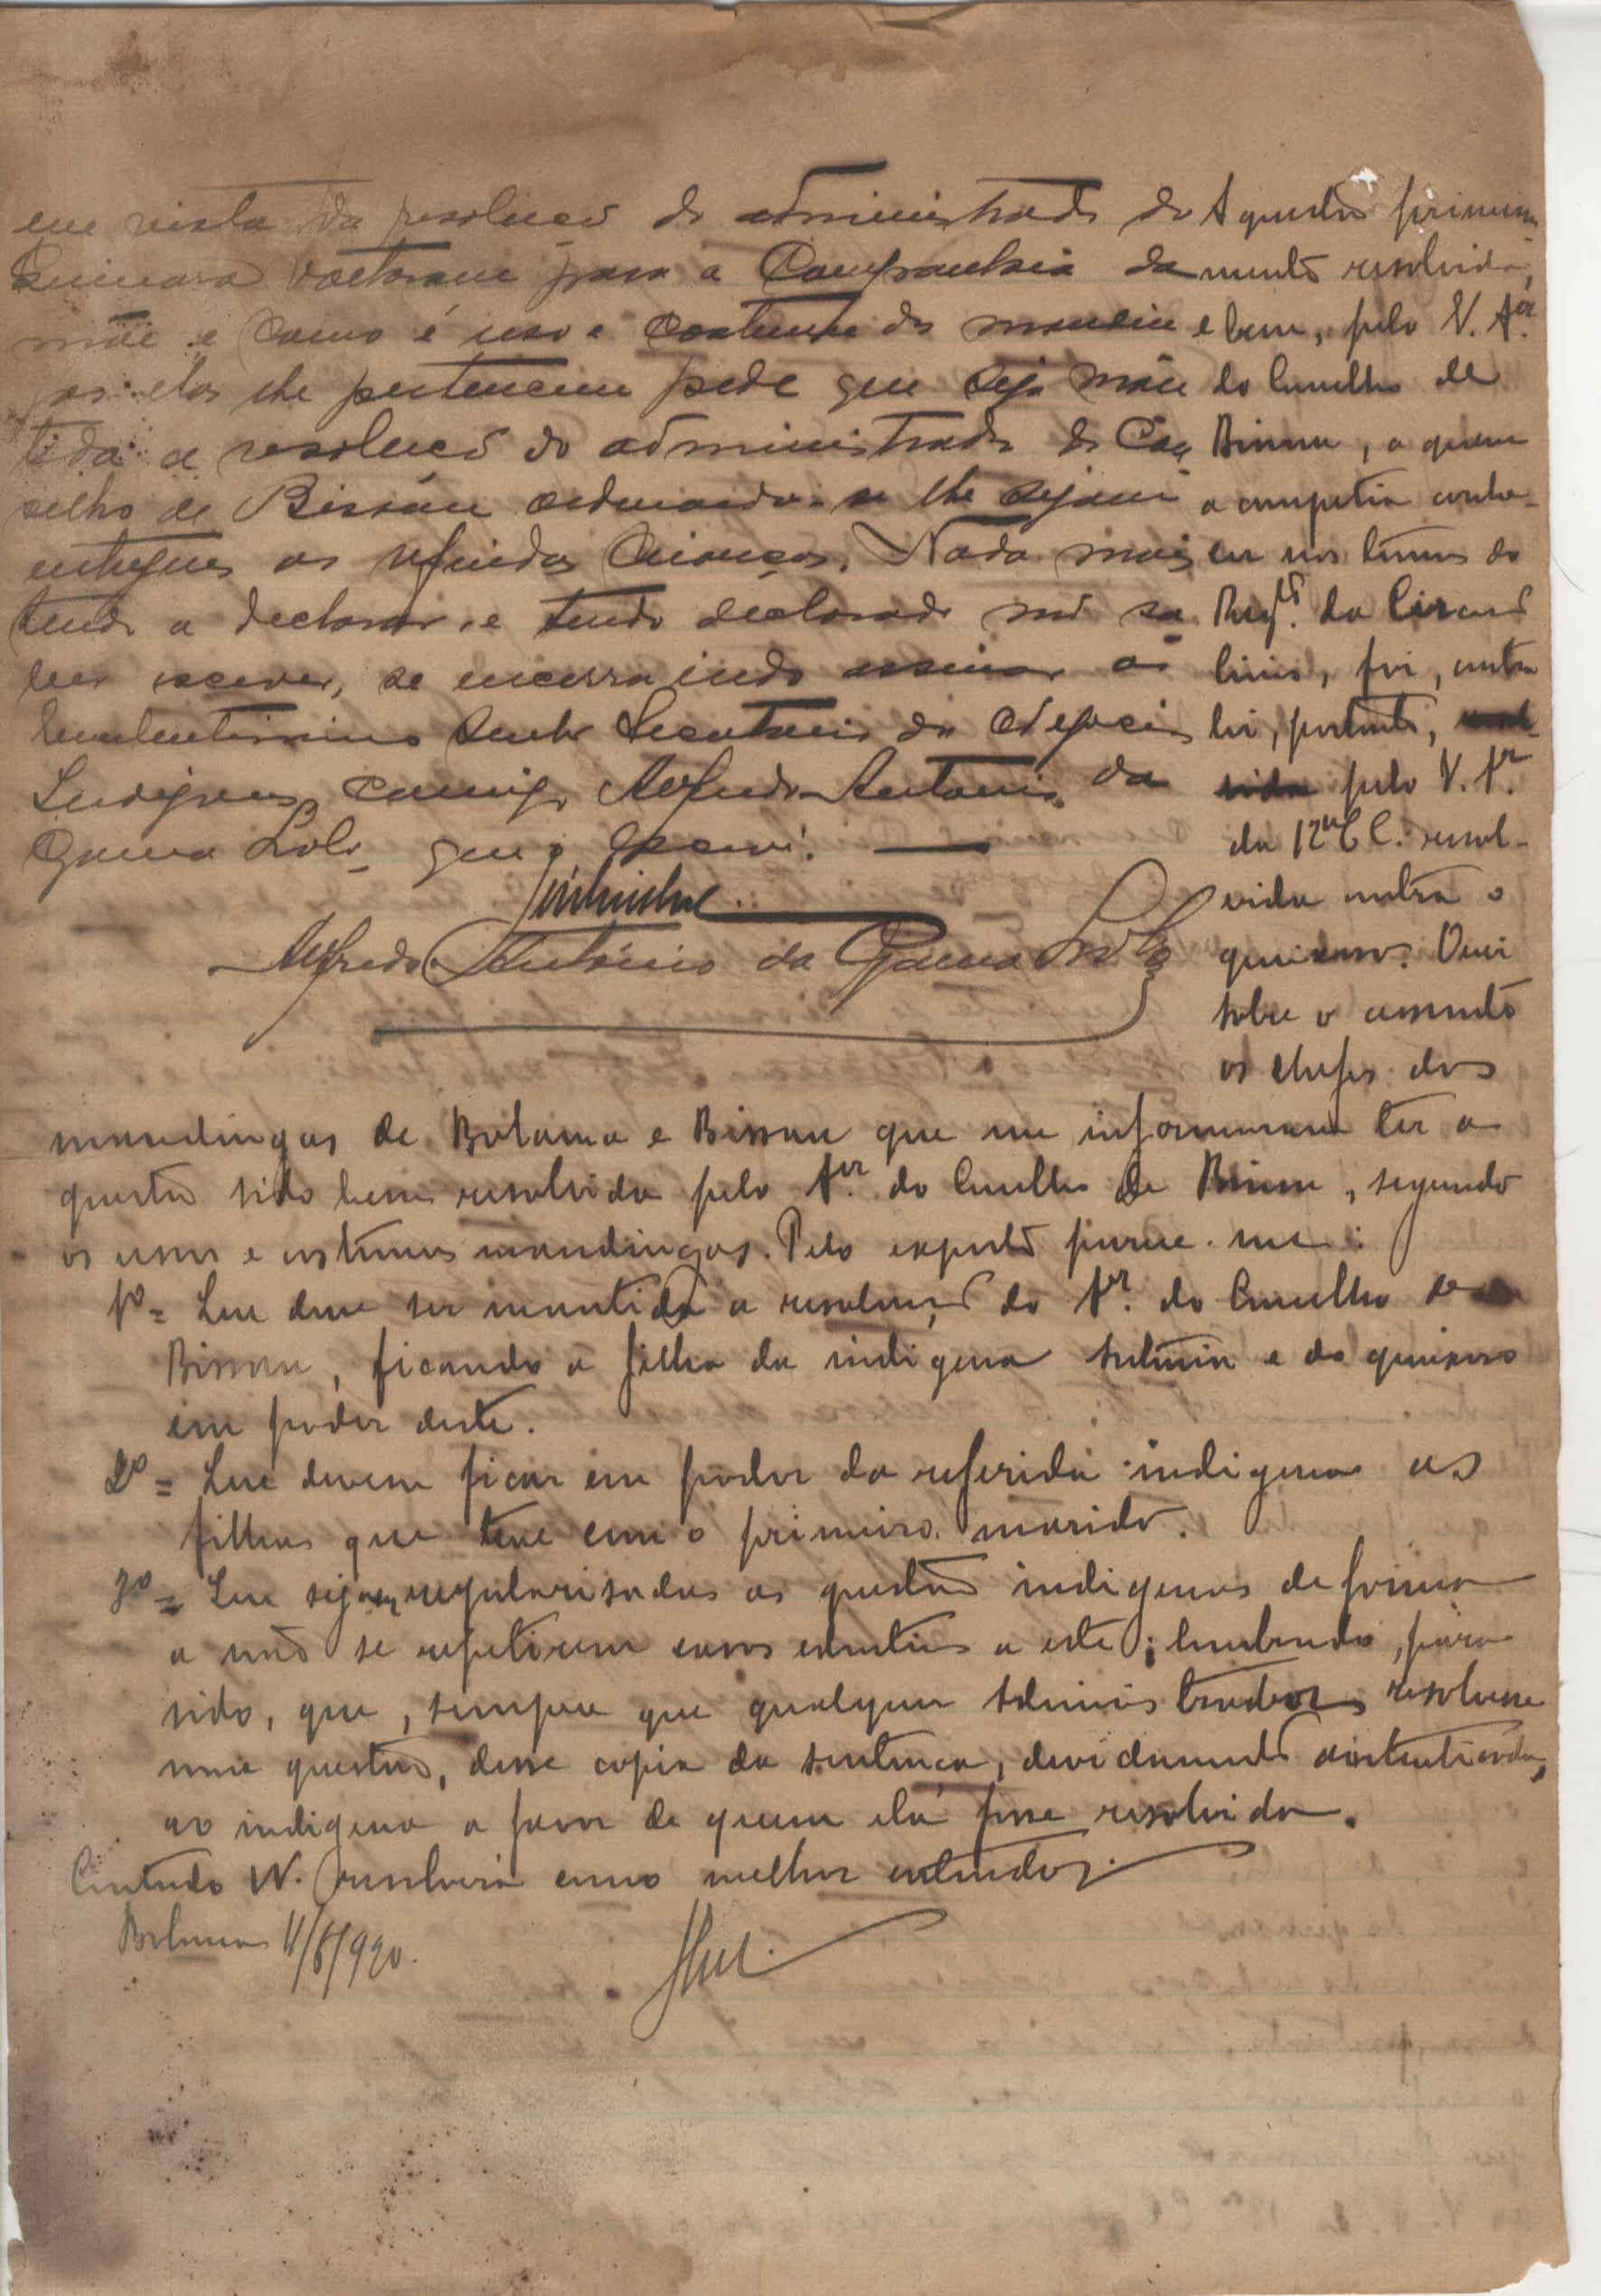 em vista da resolução do administrador de
Quinara voltaram para a Companhia da
mãe e como é uso e costume dos mandin
gas elas lhe pertencem pede que seja man
tida a resolução do administrador do Con
selho de Bissau ordenando-se lhe sejam
entregues as referidas crianças. Nada mais
tendo a declarar e tendo declarado não sa
ber escrever, se encerra indo assinar o
Excelentissimo Senhor Secretario dos Negocios
Indigenas comigo Alfredo Antonio da
Gama Lobo que o escrevi.
Alfredo António da Gama Lobo
A questão primeira
mente resolvida,
e bem, pelo V. A.or
do Concelho de
Bissau, a quem
a competia conhe-
cer nos termos do
Reg.to da Circuns
crições, foi, contra
lei, portanto,
pelo V. A.or
da 12ª C. C. resol-
vida contra o
queixoso. Ouvi
sobre o assunto
os chefes dos
mandingas de Bolama e Bissau que me informaram ter a
questão sido bem resolvida pelo A.or do Concelho de Bissau, segundo
os usos e costumes mandingas. Pelo exposto parece-me:
1º = Que deve ser mantida a resolução do A.or do Concelho de
Bissau, ficando a filha da indigena e do queixoso
em poder deste.
2º = Que devem ficar em poder da referida indigena as
filhas que teve com o primeiro marido.
3º = Que sejam regularisadas as questões indigenas de forma
a não se repetirem casos identicos a este; lembrando, para
isso, que, sempre que qualquer administrador resolvesse
uma questão, desse copia da sentença, devidamente autenticada,
ao indigena a favor de quem ela fosse resolvida.
Contudo V. resolverá como melhor entender.
Bolama 11/6/920.